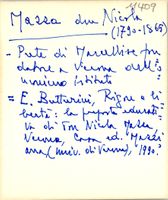 11409
Mazza don Nicola
(1790-1865)
- Prete di Marcellise fon
datore a Verona dell'o
monimo istituto
= E. Butturini, Rigore e li
bertà: la proposta educati
va di don Nicola Mazza
Verona, Casa ed. Mazzi
ana, (Univ. di Verona), 1990